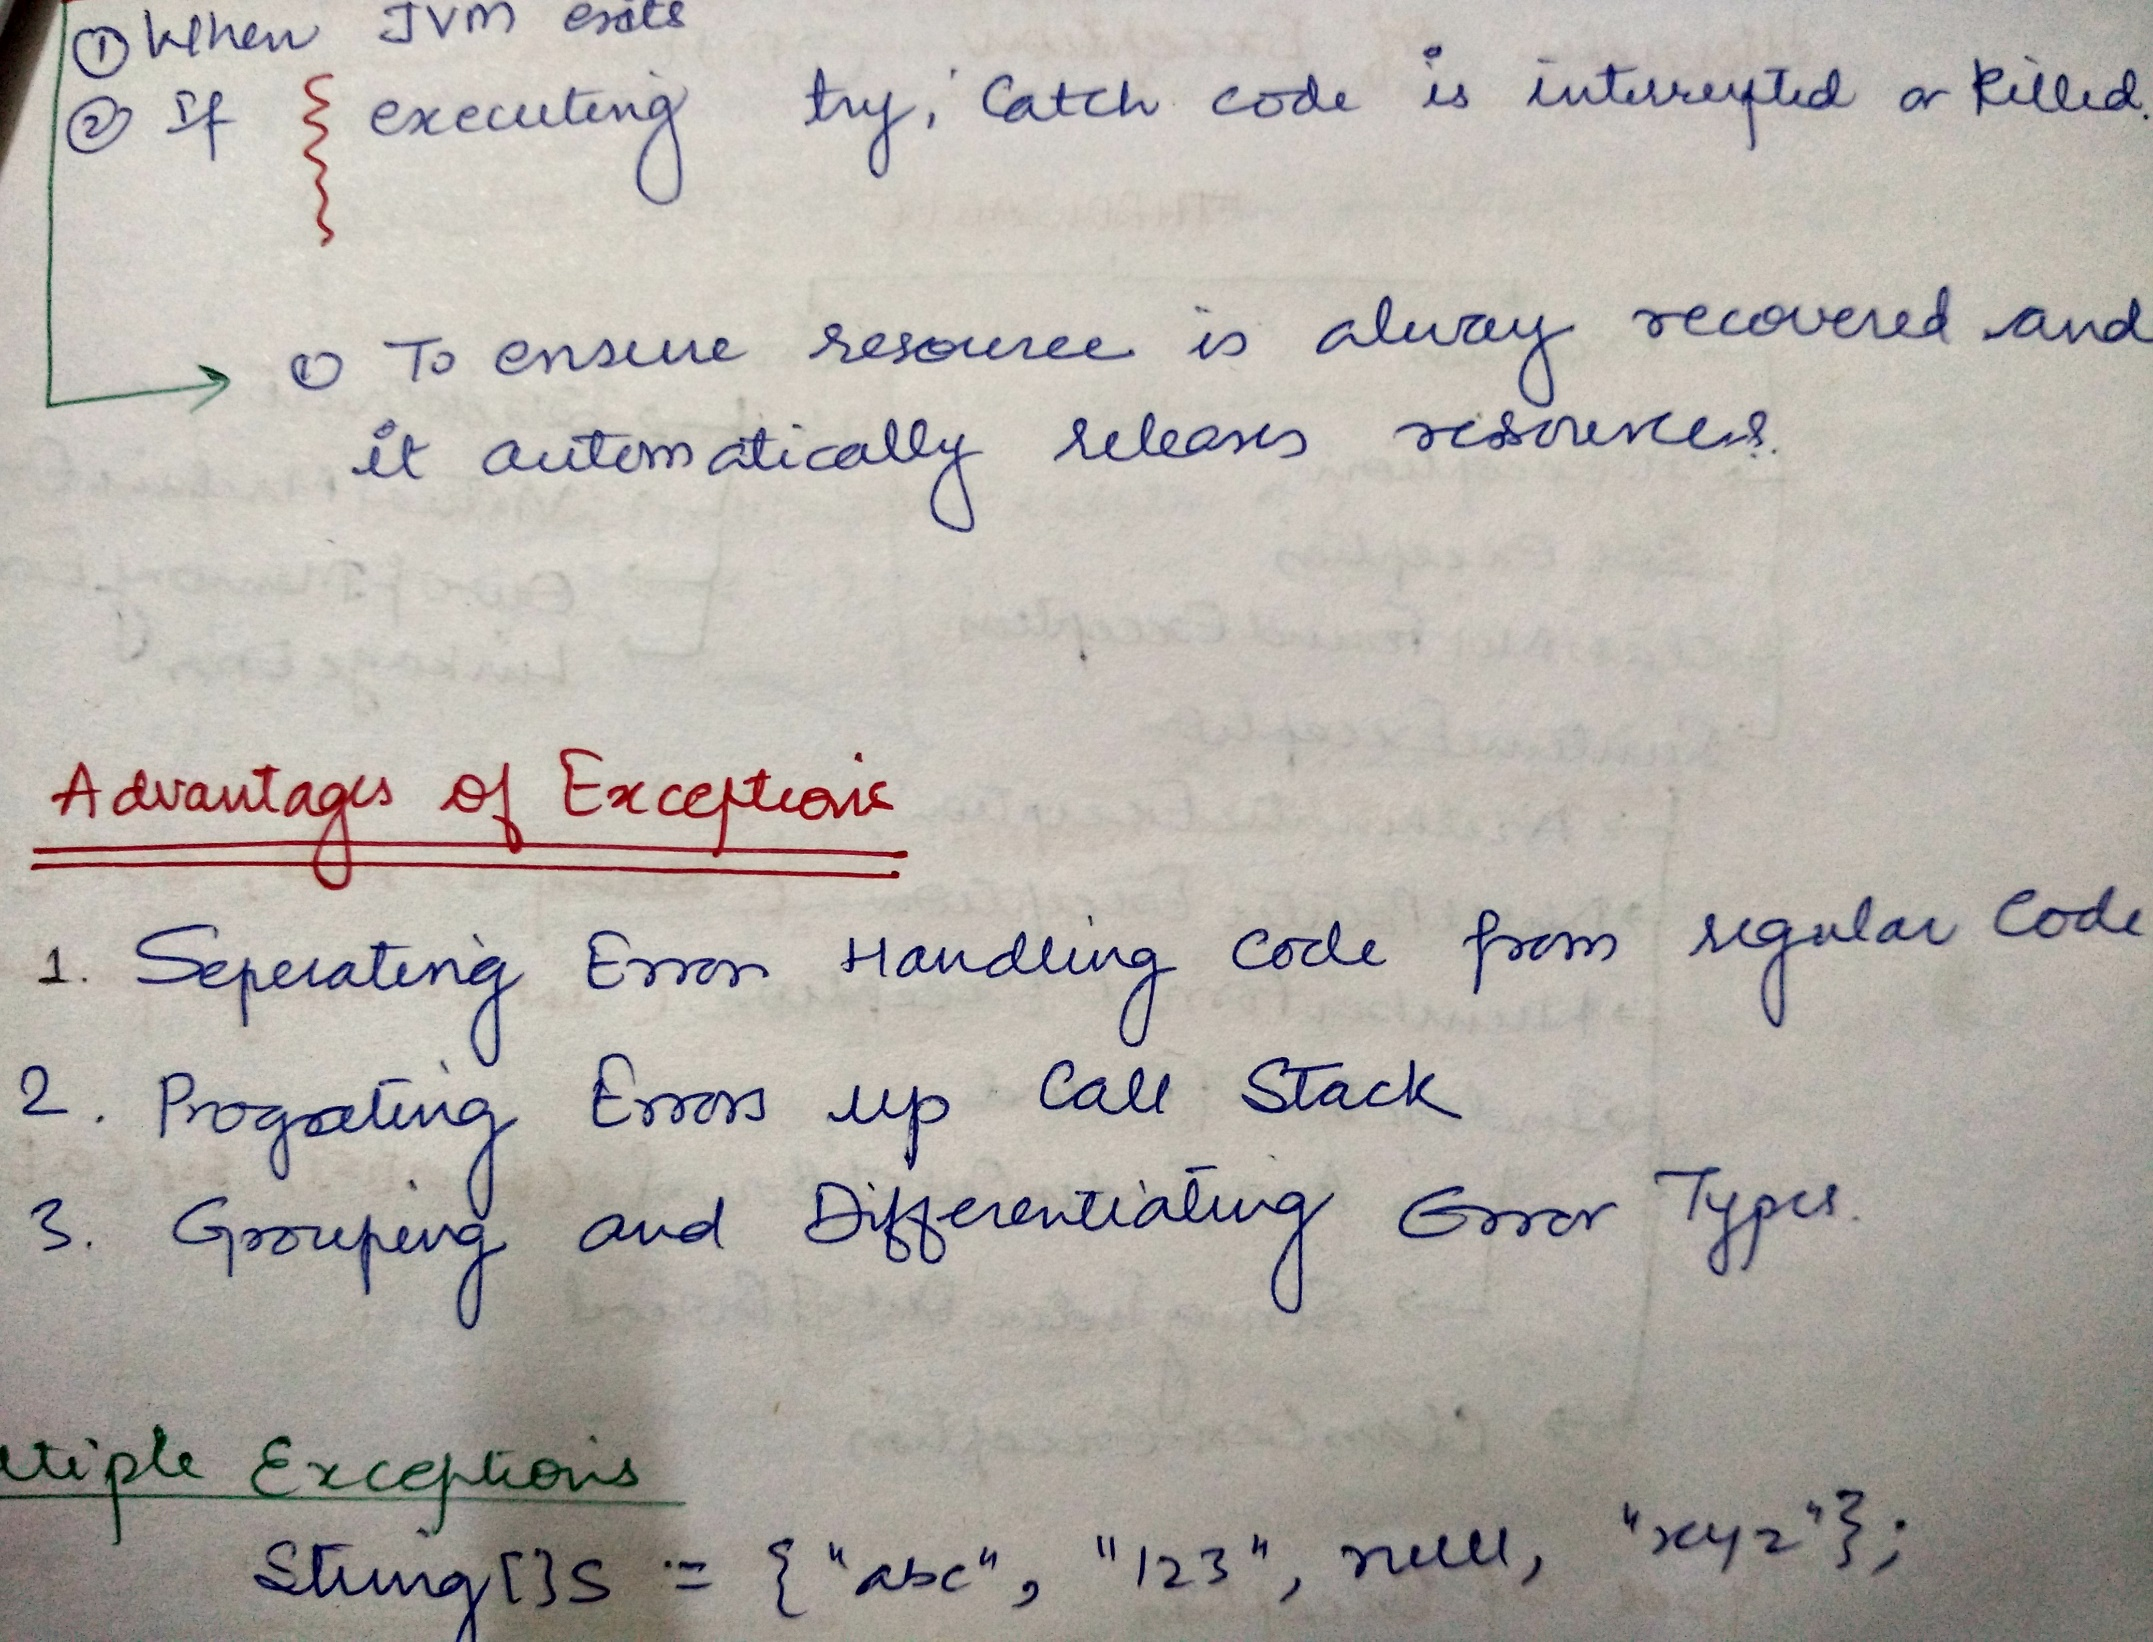 ① When JVM exits
② If executing try, Catch code is interrupted or killed.
① To ensure resource is alway recovered and
it automatically releases resources.
Advantages of Exceptions
1. Seperating Error Handling Code from regular Code
2. Prograting Errors up Call Stack
3. Grouping and Differentiating Error Types.
ltiple Exceptions
String[]s = {"abc", "123", null, "xyz"};